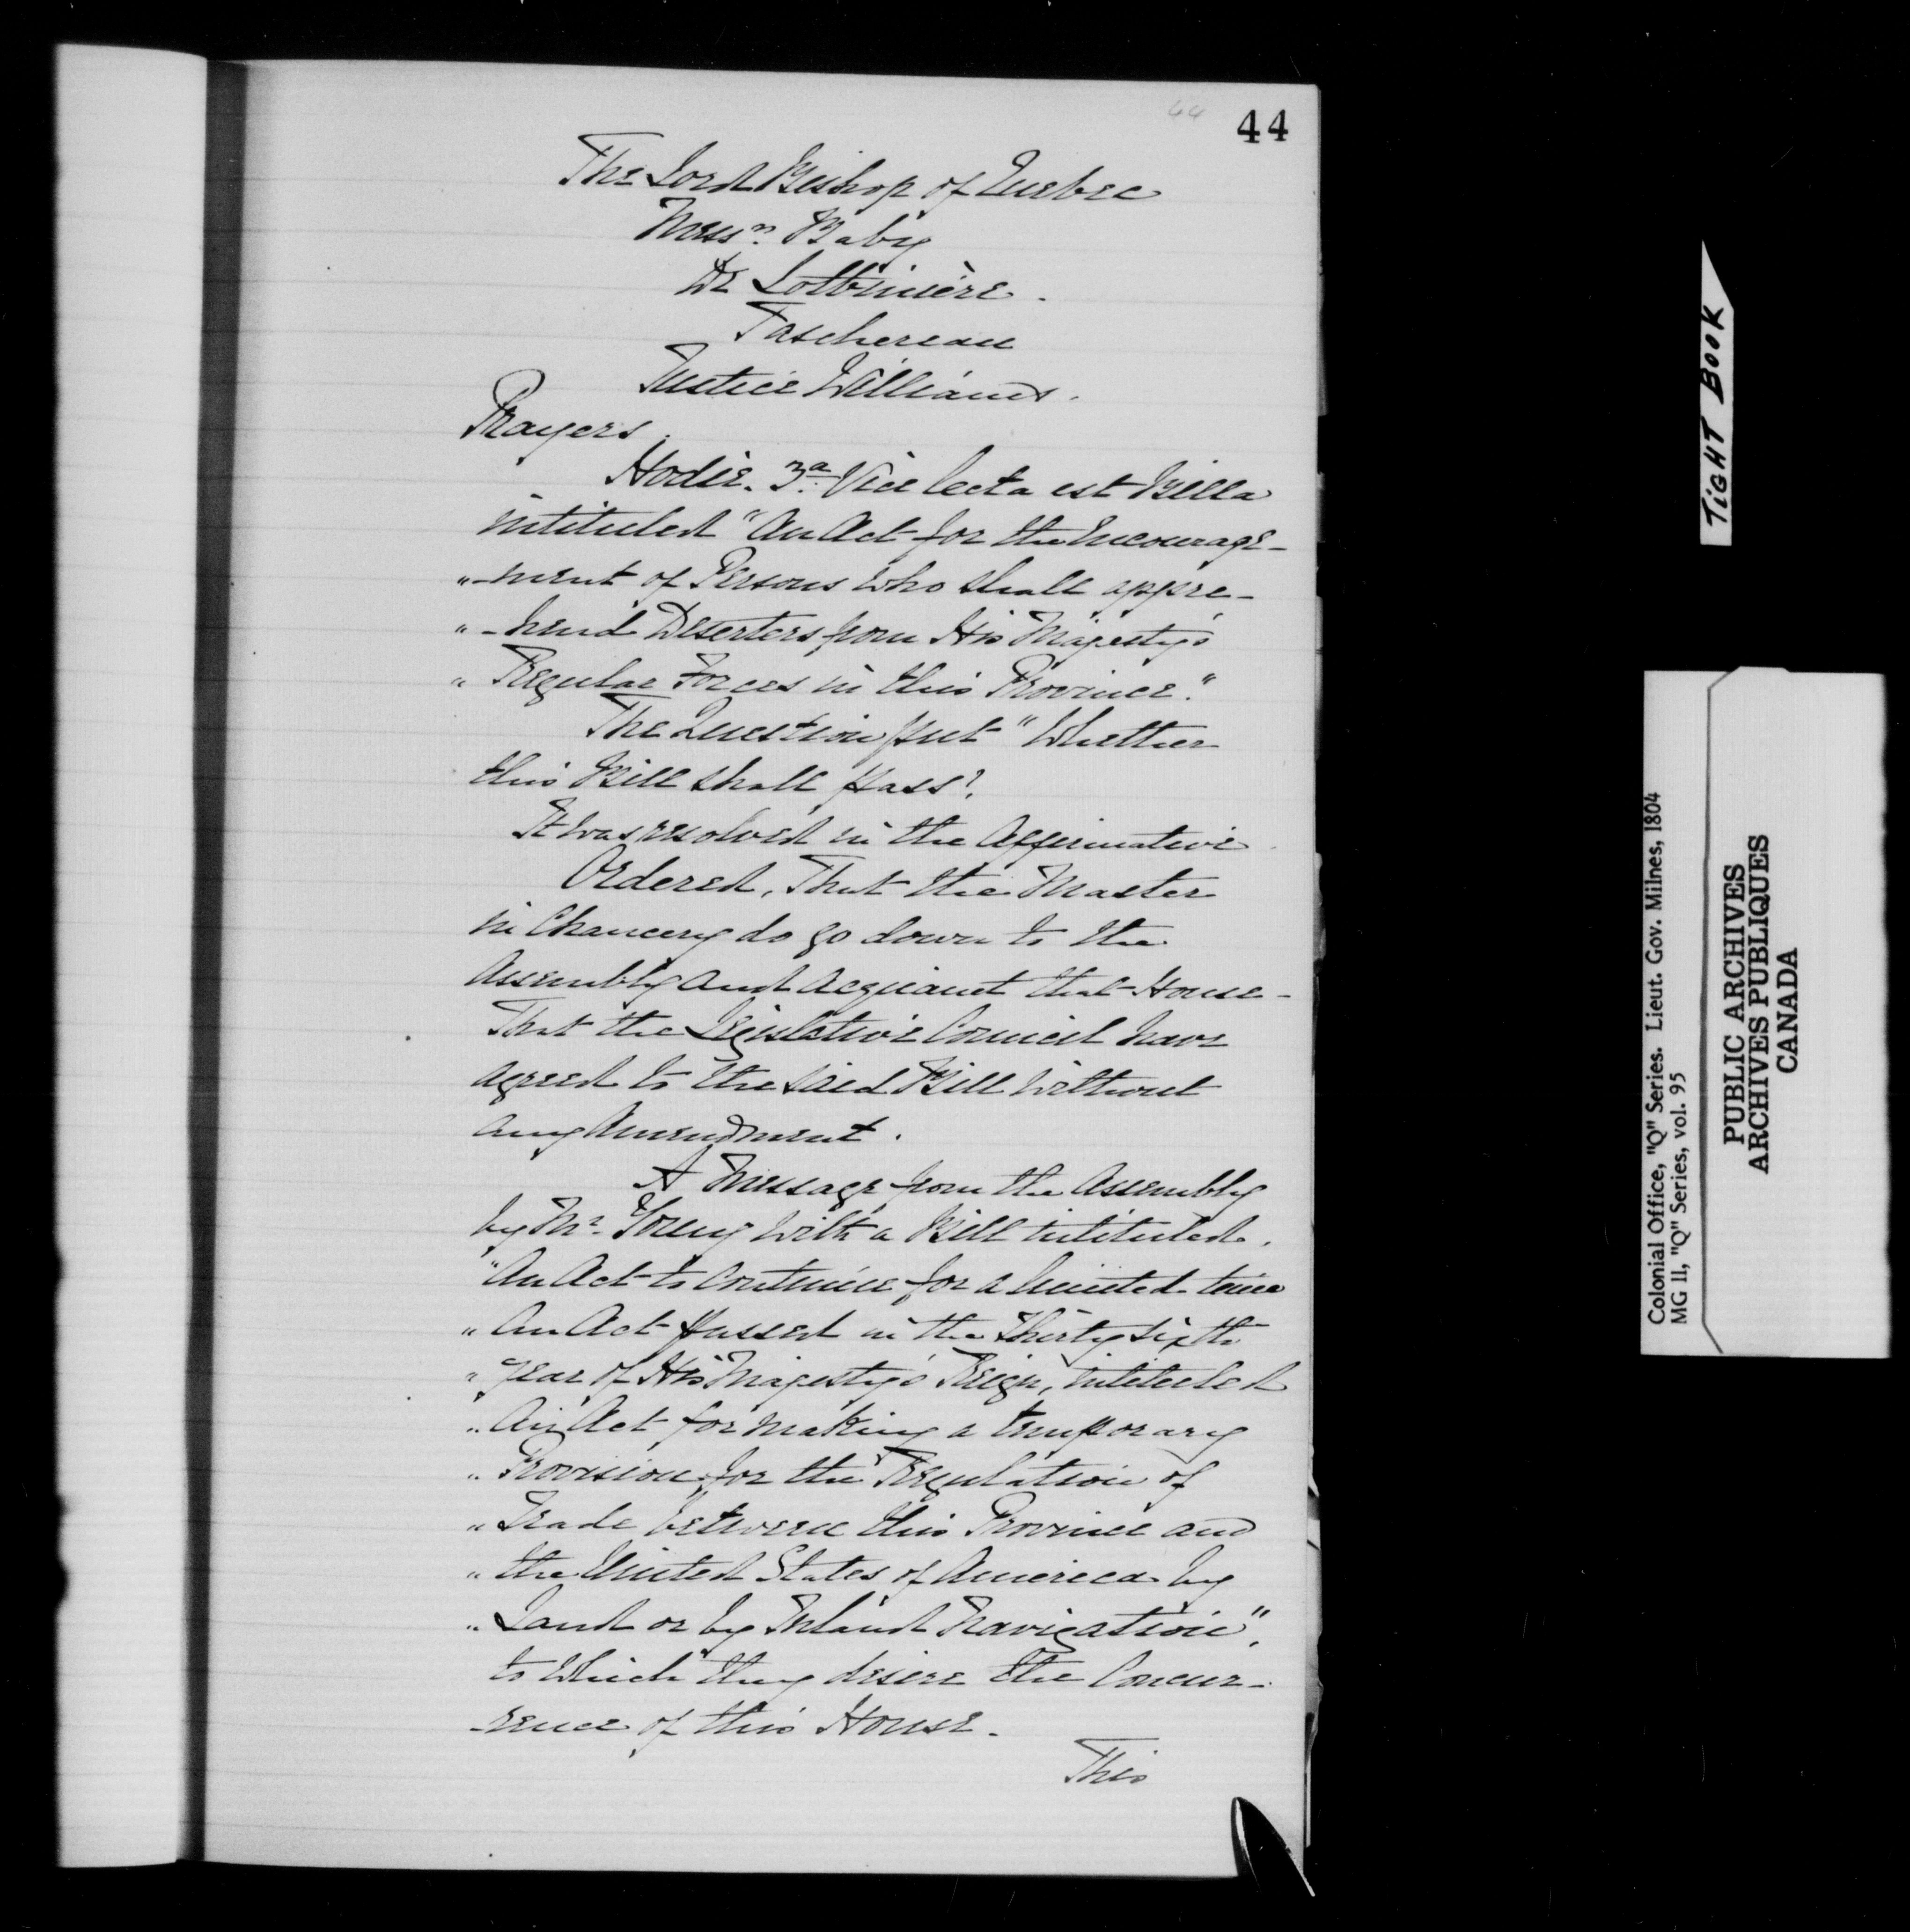 44
44
The Lord Bishop of Quebec
Mess.rs Baby
De Lotbinière.
Taschereau
Justice Williams.
Prayers.
Hodiè. 3a. Vice lecta est Billa
intituled "An Act for the Encourage-
"-ment of Persons who shall appre-
"-hend Deserters from His Majesty's
" Regular Forces in this Province."
The Question put "Whether
this Bill shall pass?
It was resolved in the Affirmative.
Ordered, That the Master
in Chancery do go down to the
Assembly and acquaint that House-
That the Legislative Council have
agreed to the said Bill without
any Amendment.
A Message from the Assembly
by Mr. Young with a Bill intituled.
"An Act to continue for a limited time
" An Act passed in the Thirty sixth
" year of His Majesty's Reign, intituled
" An Act for making a temporary
" Provision for the Regulation of
" Trade between this Province and
" the United States of America by
" Land or by Inland Navigation",
to which they desire the Concur-
-rence of this House.
This
TIGHT BOOK
Colonial Office, "Q" Series. Lieut. Gov. Milnes, 1804
MG 11, "Q" Series, vol. 95
PUBLIC ARCHIVES
ARCHIVES PUBLIQUES
CANADA